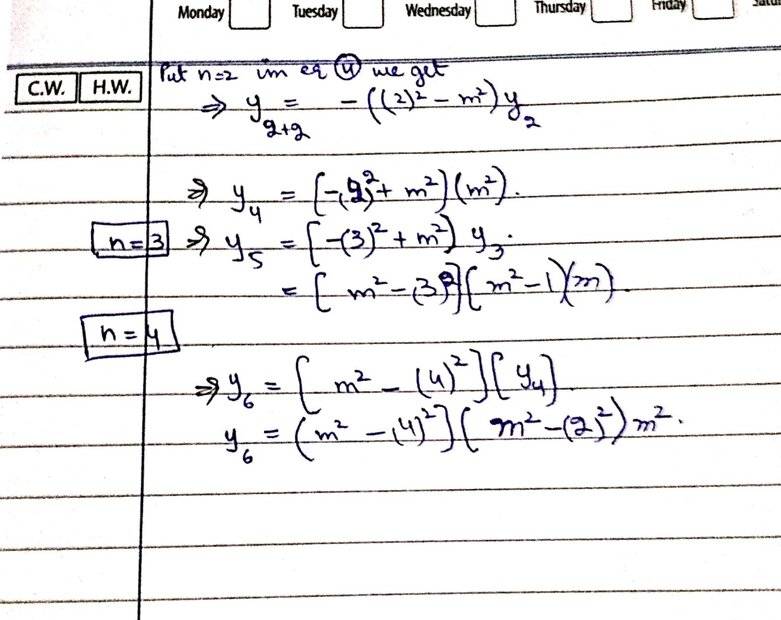 Monday Tuesday Wednesday Thursday Friday
C.W. H.W. Put n=2 in eq ④ we get
⇒ y_{2+2} = -((2)² - m²) y_2
⇒ y_4 = [-(2)² + m²] (m²).
n=3 ⇒ y_5 = [-(3)² + m²) y_3.
= [m² - (3)²] [m² - 1) (m).
n=4
⇒ y_6 = [m² - (4)²] [y_4]
y_6 = (m² - (4)²] [m² - (2)²) m².